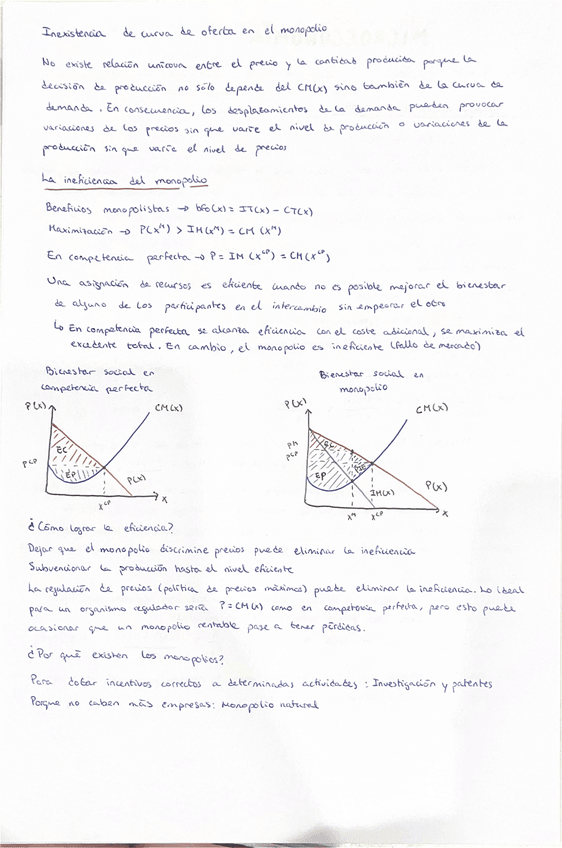 Inexistencia de curva de oferta en el monopolio
No existe relación unívoca entre el precio y la cantidad producida porque la
decisión de producción no solo depende del CM(x) sino también de la curva de
demanda. En consecuencia, los desplazamientos de la demanda pueden provocar
variaciones de los precios sin que varíe el nivel de producción o variaciones de la
producción sin que varíe el nivel de precios
La ineficiencia del monopolio
Beneficios monopolistas → bfo(x) = IT(x) - CT(x)
Maximización → P(x^M) > IM(x^M) = CM(x^M)
En competencia perfecta → P = IM(x^CP) = CM(x^CP)
Una asignación de recursos es eficiente cuando no es posible mejorar el bienestar
de alguno de los participantes en el intercambio sin empeorar el otro
↳ En competencia perfecta se alcanza eficiencia con el coste adicional, se maximiza el
excedente total. En cambio, el monopolio es ineficiente (fallo de mercado)
Bienestar social en
competencia perfecta
P(x)
CM(x)
EC
P^CP
EP
P(x)
x^CP
x
Bienestar social en
monopolio
P(x)
CM(x)
P^M
P^CP
EC
EP
IM(x)
P(x)
x^M
x^CP
x
¿Cómo lograr la eficiencia?
Dejar que el monopolio discrimine precios puede eliminar la ineficiencia
Subvencionar la producción hasta el nivel eficiente
La regulación de precios (política de precios máximos) puede eliminar la ineficiencia. Lo ideal
para un organismo regulador sería P = CM(x) como en competencia perfecta, pero esto puede
ocasionar que un monopolio rentable pase a tener pérdidas.
¿Por qué existen los monopolios?
Para dotar incentivos correctos a determinadas actividades: Investigación y patentes
Porque no caben más empresas: Monopolio natural